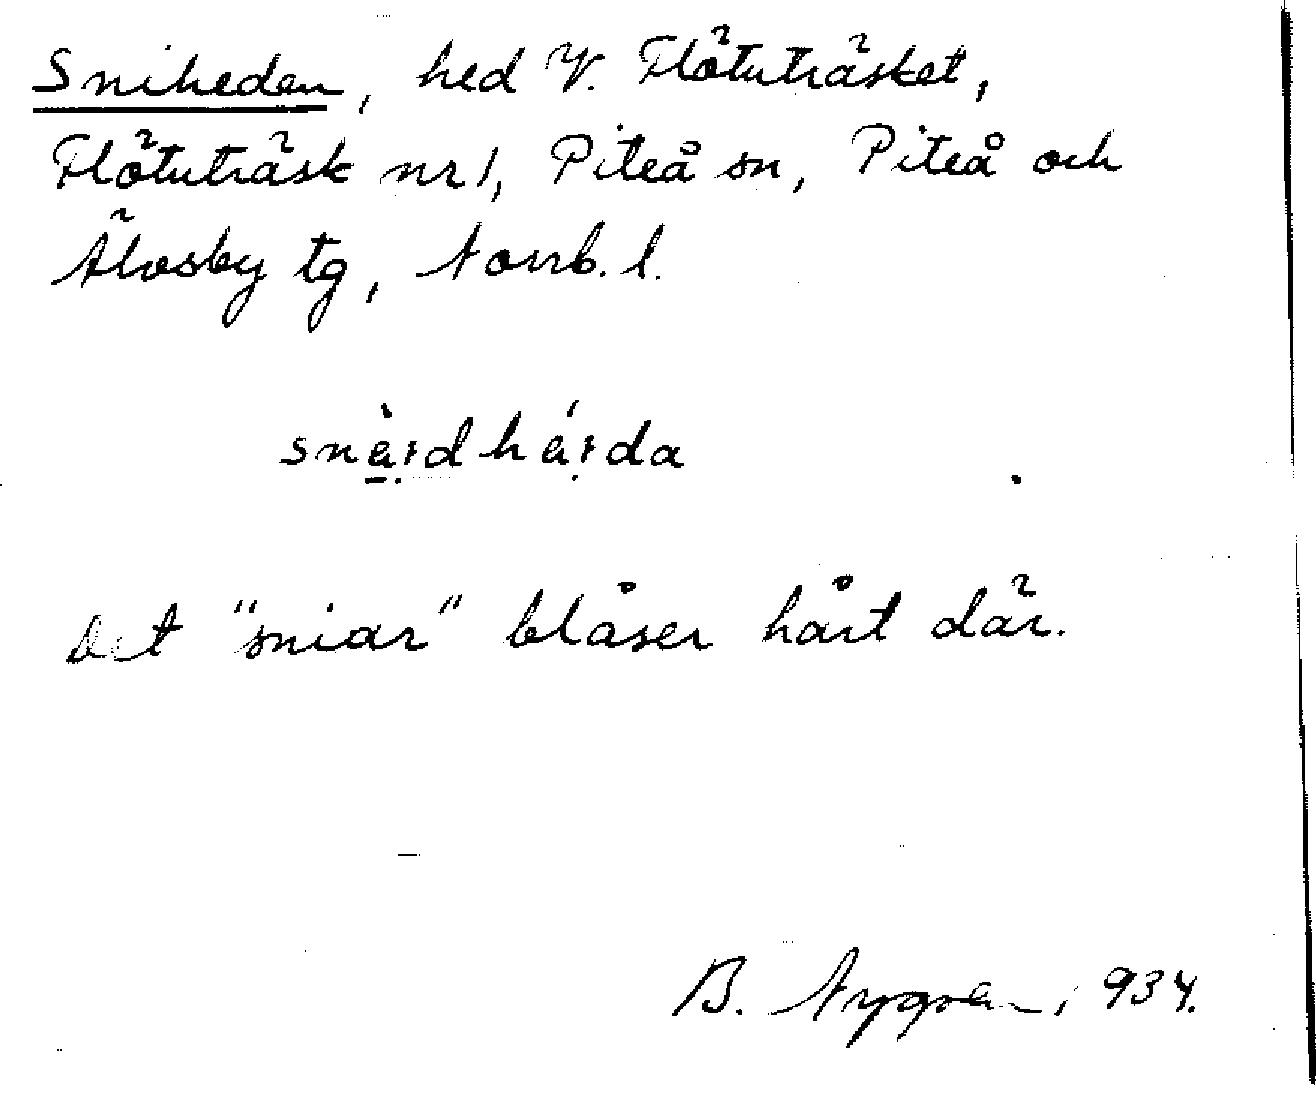 Sniheden, hed V. Flötuträsket,
Flötuträsk nr 1, Piteå sn, Piteå och
Älvsby tg, Norrb. l.
snạ̀ıdhạ́ıda
Det "sniar" blåser hårt där.
B. Nygren, 934.